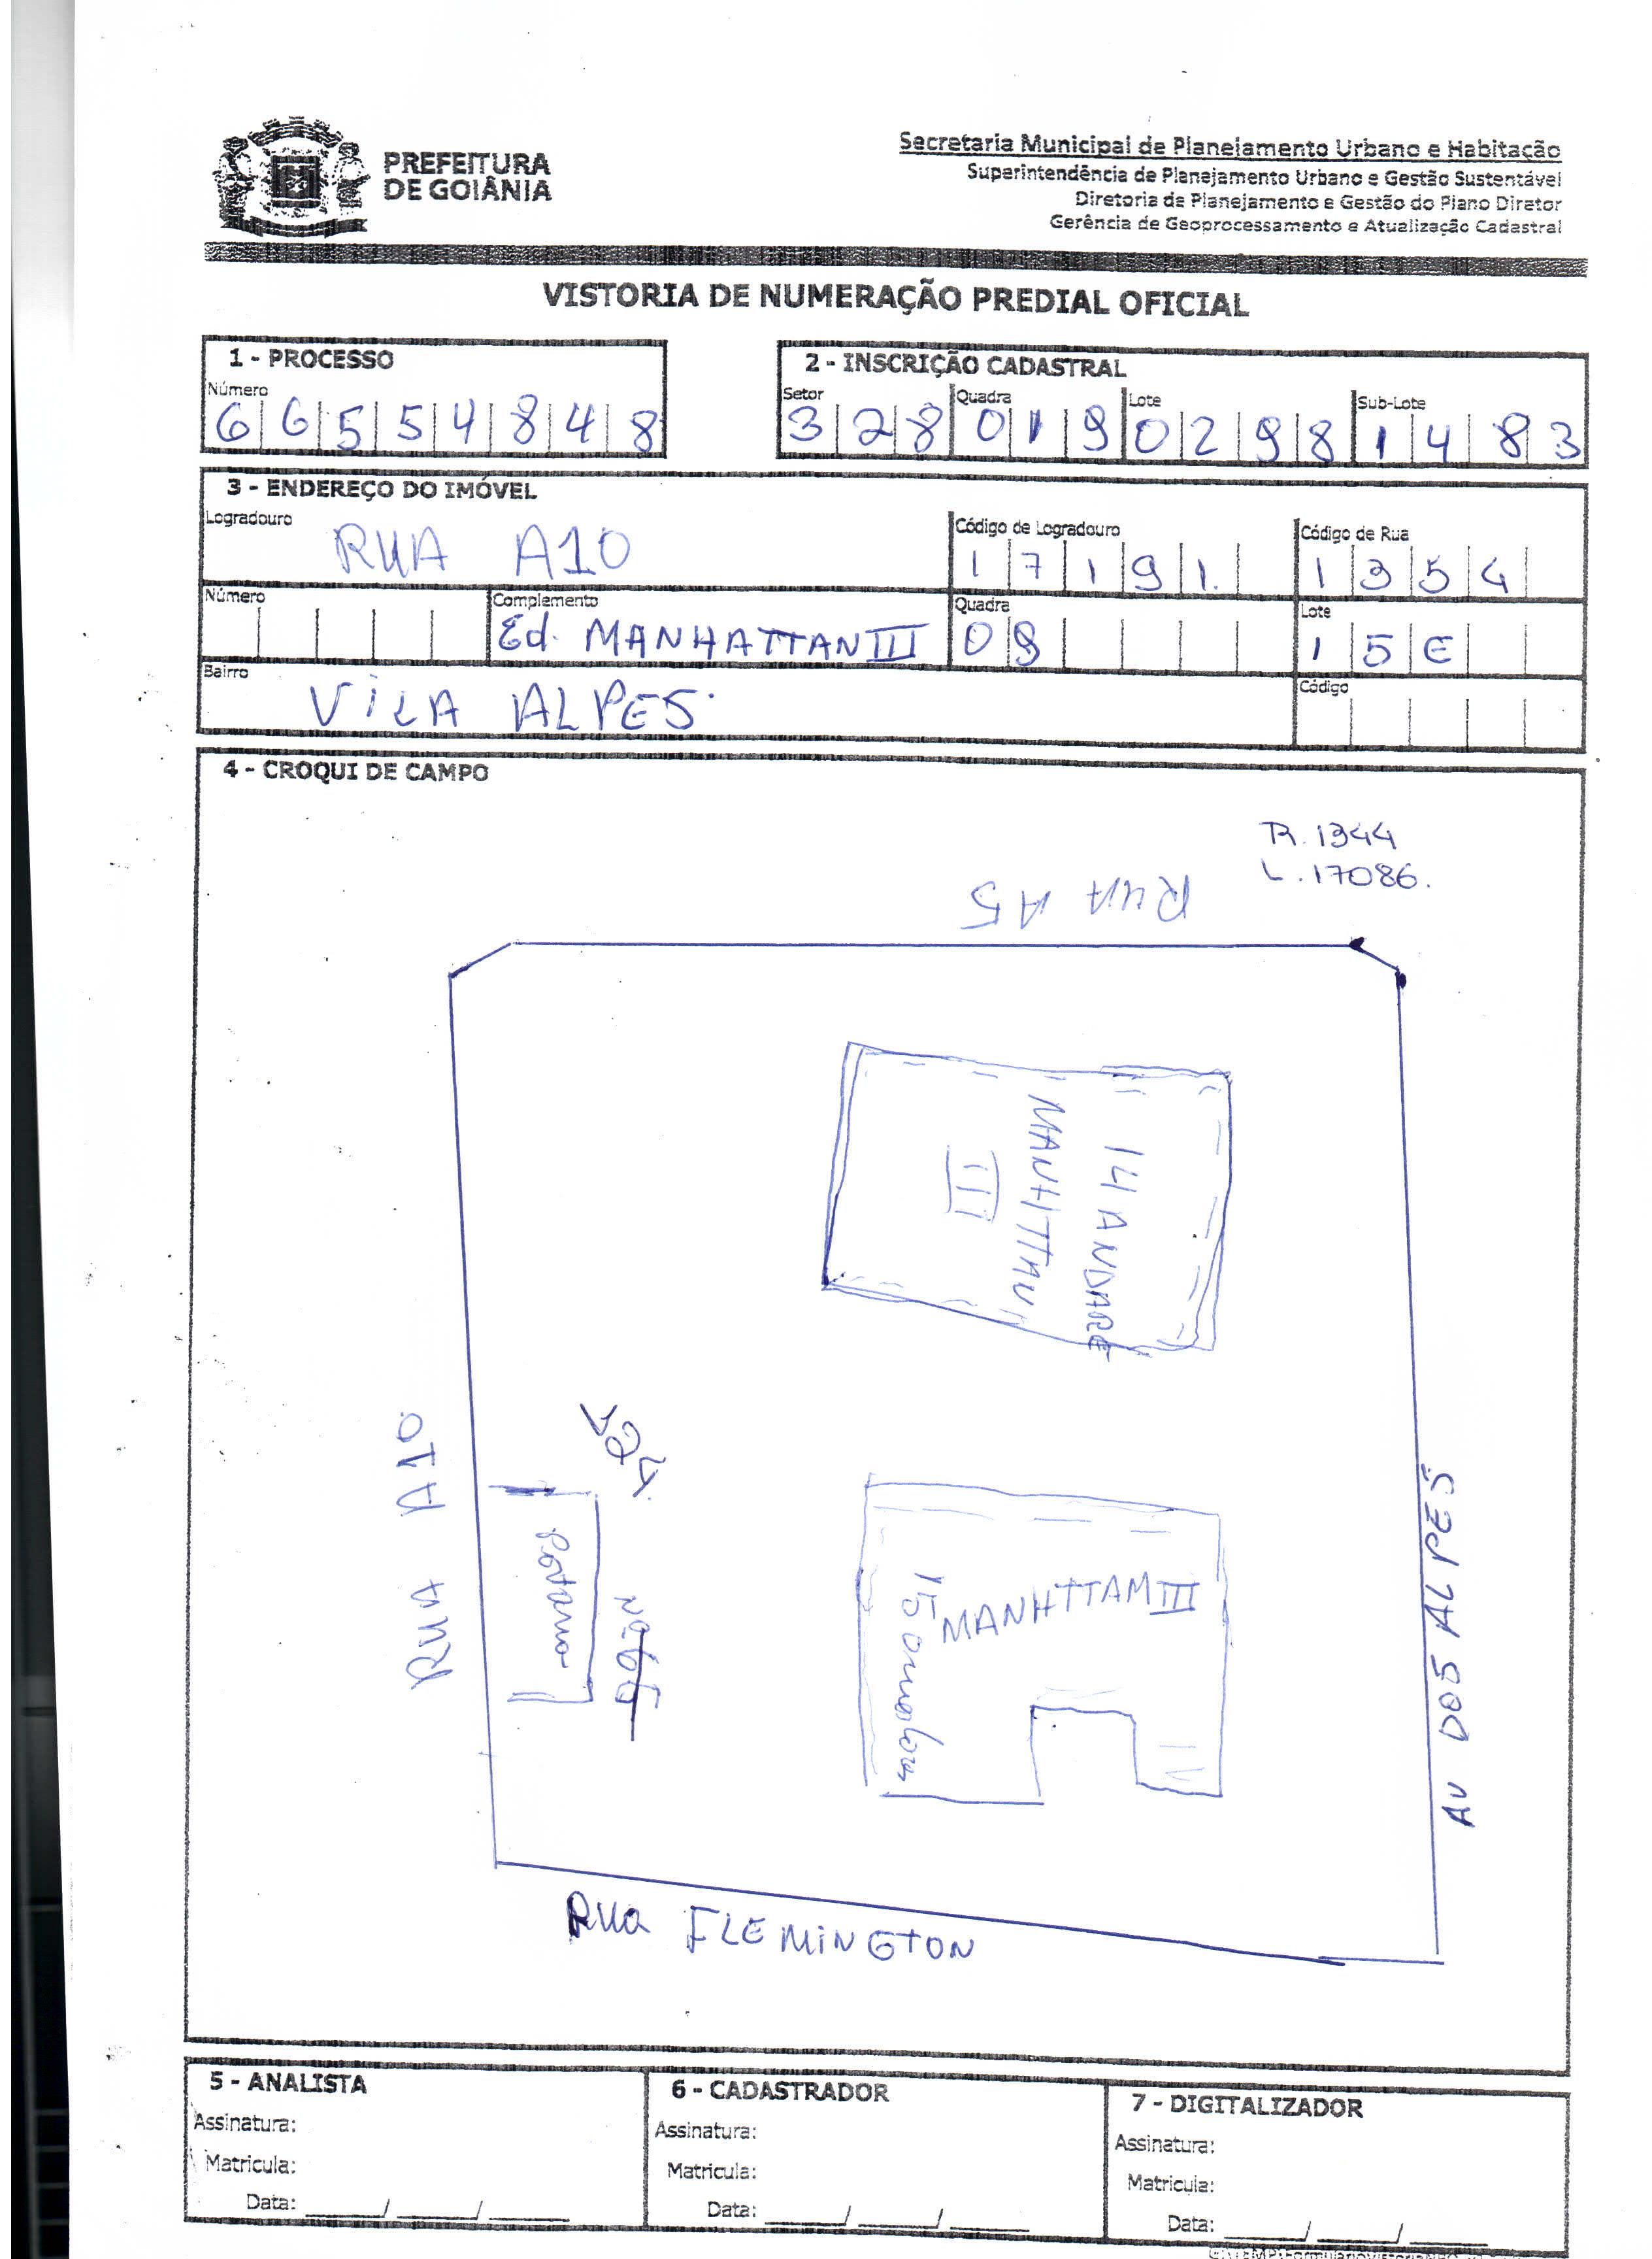 PREFEITURA
DE GOIÂNIA
Secretaria Municipal de Planejamento Urbano e Habitação
Superintendência de Planejamento Urbano e Gestão Sustentável
Diretoria de Planejamento e Gestão do Plano Diretor
Gerência de Geoprocessamento e Atualização Cadastral
VISTORIA DE NUMERAÇÃO PREDIAL OFICIAL
1 - PROCESSO
Número
6 6 5 5 4 8 4 8
2 - INSCRIÇÃO CADASTRAL
Setor Quadra Lote Sub-Lote
3 2 8 0 1 9 0 2 9 8 1 4 8 3
3 - ENDEREÇO DO IMÓVEL
Logradouro
RUA A10
Código de Logradouro
1 7 1 9 1.
Código de Rua
1 3 5 4
Número
Complemento
Ed. MANHATTAN III
Quadra
0 9
Lote
1 5 E
Bairro
VILA ALPES.
Código
4 - CROQUI DE CAMPO
R. 1344
L. 17086.
RUA A5
14 ANDARE
MANHTTAN
III
RUA A10
524.
Nº 65
MANHTTAM III
15
AV DOS ALPES
RUa FLEMINGTON
5 - ANALISTA
Assinatura:
Matricula:
Data: ____/____/____
6 - CADASTRADOR
Assinatura:
Matricula:
Data: ____/____/____
7 - DIGITALIZADOR
Assinatura:
Matricula:
Data: ____/____/____